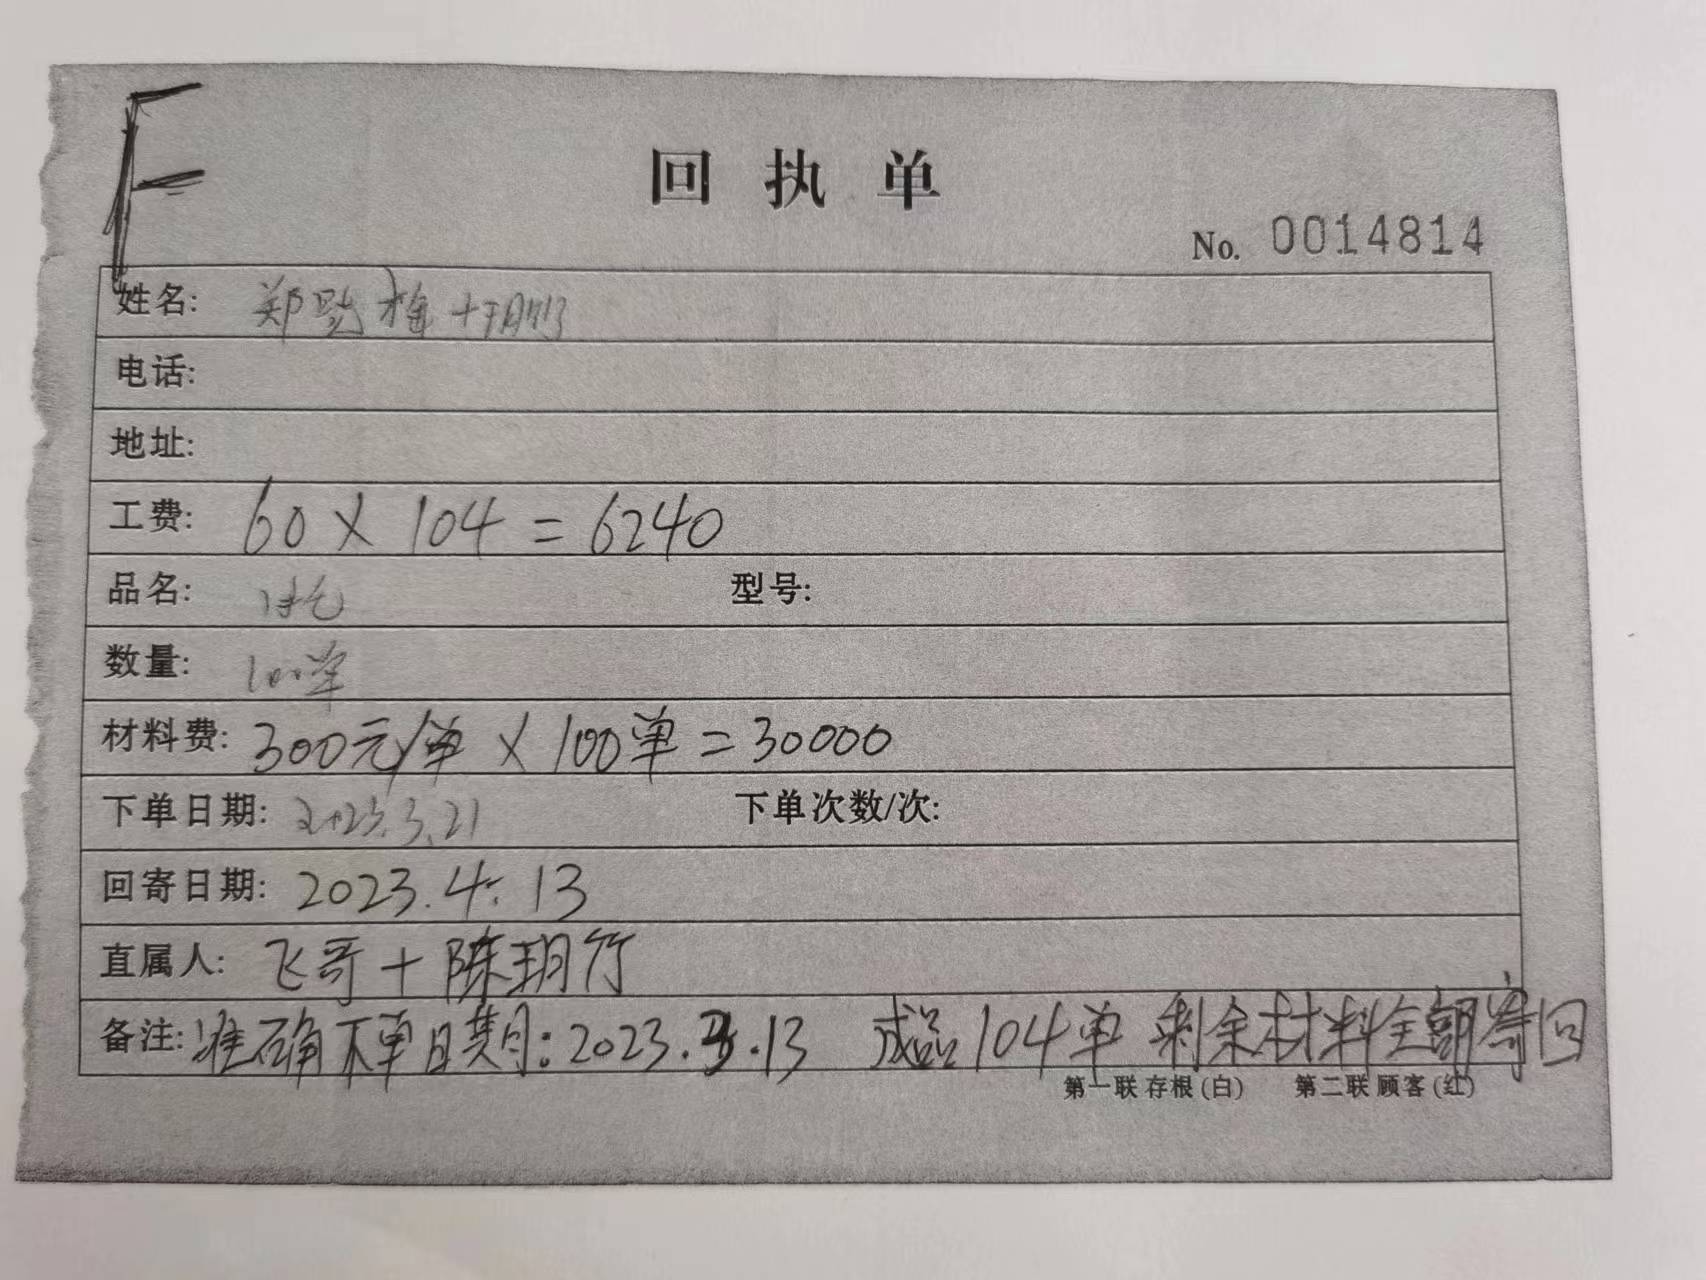 F
回执单
No. 0014814
姓名: 郑
电话:
地址:
工费: 60 X 104 = 6240
品名: 型号:
数量: 100单
材料费: 300元/单 X 100单 = 30000
下单日期: 2023.3.21 下单次数/次:
回寄日期: 2023.4.13
直属人: 飞哥 + 陈玥竹
备注: 准确下单日期: 2023.3.13 成品104单 剩余材料全部寄回
第一联 存根(白) 第二联 顾客(红)